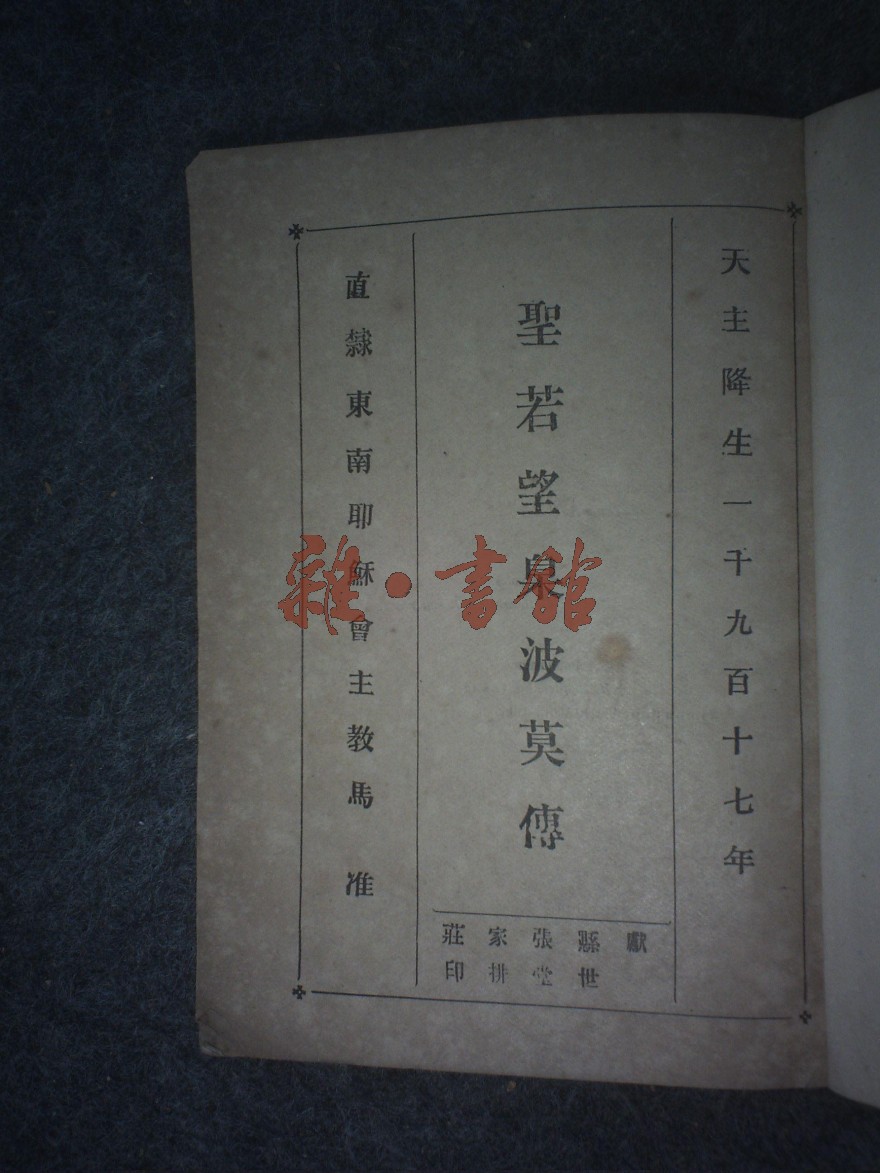 天主降生一千九百十七年
聖若望臬波莫傳
獻縣張家莊
世堂排印
直隸東南耶穌會主教馬 准
雜·書館